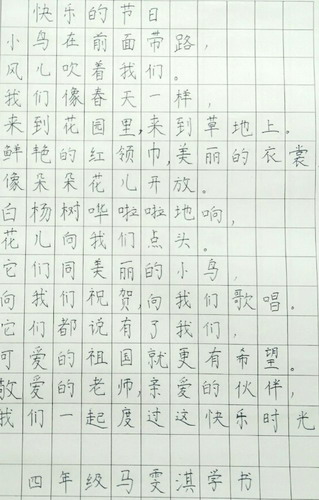 快乐的节日
小鸟在前面带路，
风儿吹着我们。
我们像春天一样，
来到花园里，来到草地上。
鲜艳的红领巾，美丽的衣裳
像朵朵花儿开放。
白杨树哗啦啦地响，
花儿向我们点头。
它们同美丽的小鸟，
向我们祝贺，向我们歌唱。
它们都说有了我们，
可爱的祖国就更有希望。
敬爱的老师，亲爱的伙伴，
我们一起度过这快乐时光
四年级马雯淇学书